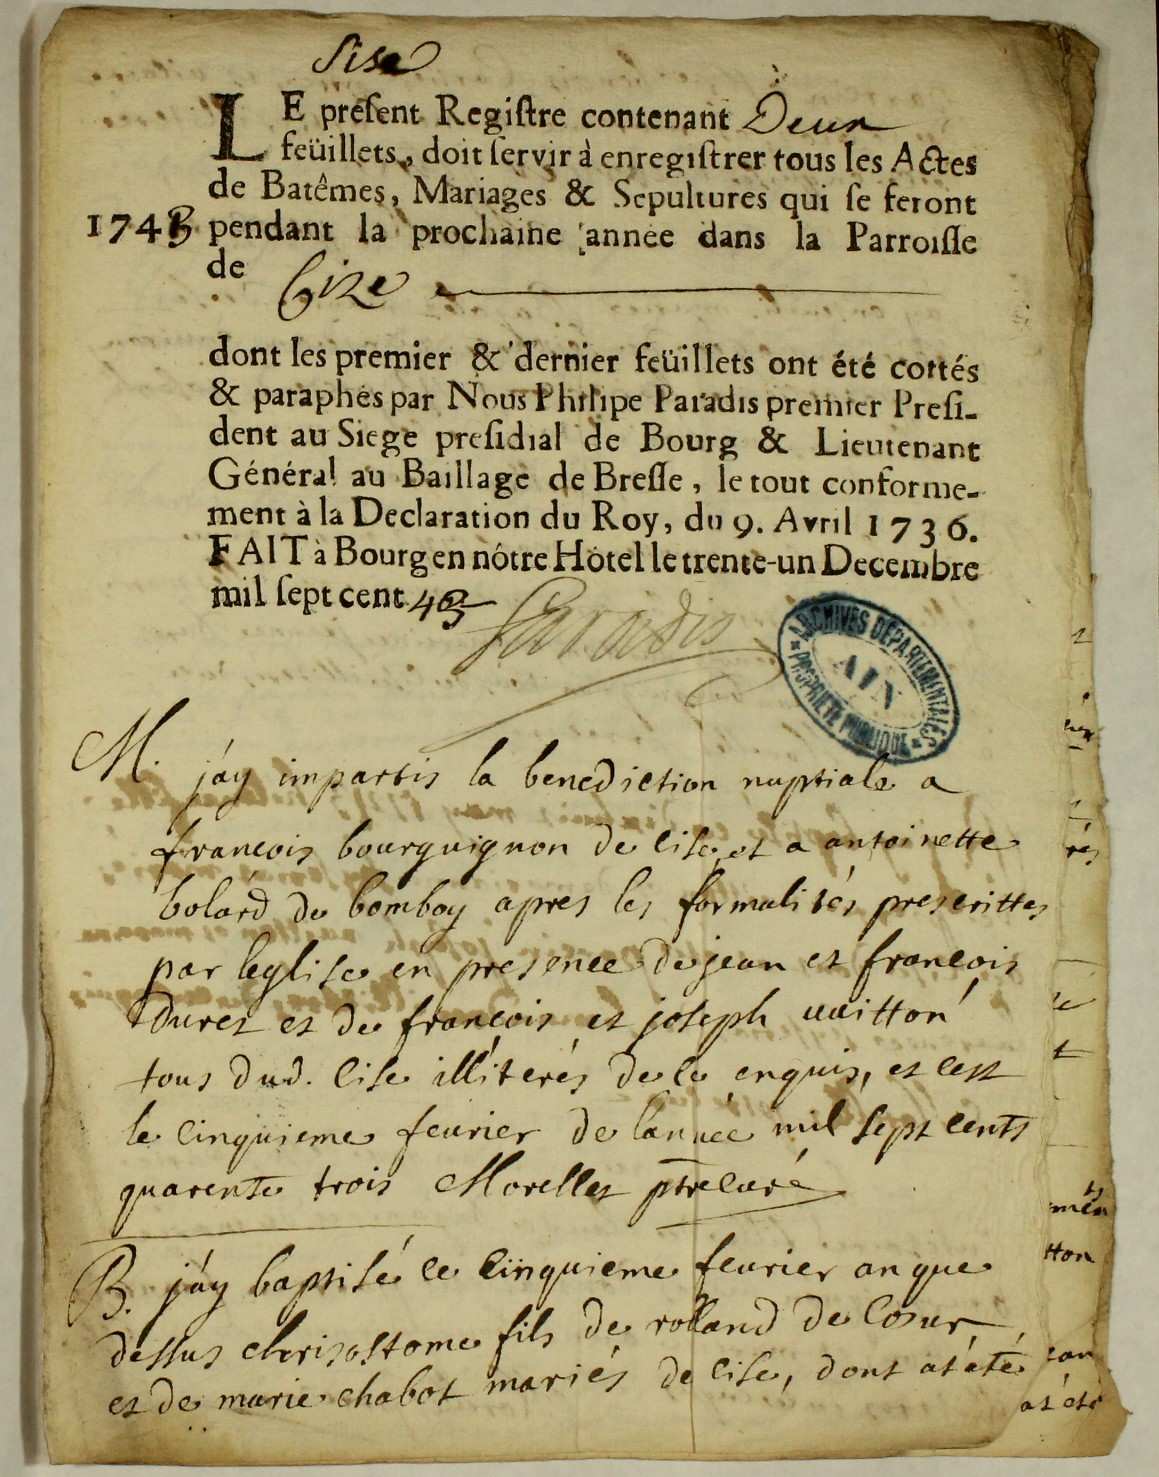 Sise
LE present Registre contenant Deux
feüillets, doit servir à enregistrer tous les Actes
de Batêmes, Mariages & Sepultures qui se feront
1743 pendant la prochaine année dans la Parroisse
de Cize
dont les premier & dernier feüillets ont été cottés
& paraphés par Nous Philipe Paradis premier Presi-
dent au Siege presidial de Bourg & Lieutenant
Général au Baillage de Bresse, le tout conforme-
ment à la Declaration du Roy, du 9. Avril 1736.
FAIT à Bourg en nôtre Hôtel le trente-un Decembre
mil sept cent 43
Paradis
ARCHIVES DÉPARTEMENTALES
AIN
PROPRIÉTÉ PUBLIQUE
M. j'ay impartis la benediction nuptiale a
francois bourguignon de cise et a antoinette
bolard de bomboy apres les formalités prescrittes
par leglise en presence de jean et francois
duret et de francois et joseph vuitton
tous dud. cise illiterés de ce enquis, et cest
le cinquieme feurier de lannée mil sept cents
quarente trois Morellet ptre curé
B. j'ay baptisé ce cinquieme feurier an que
dessus chrisostome fils de rolland de Coeur
et de marie chabot mariés de cise, dont at été